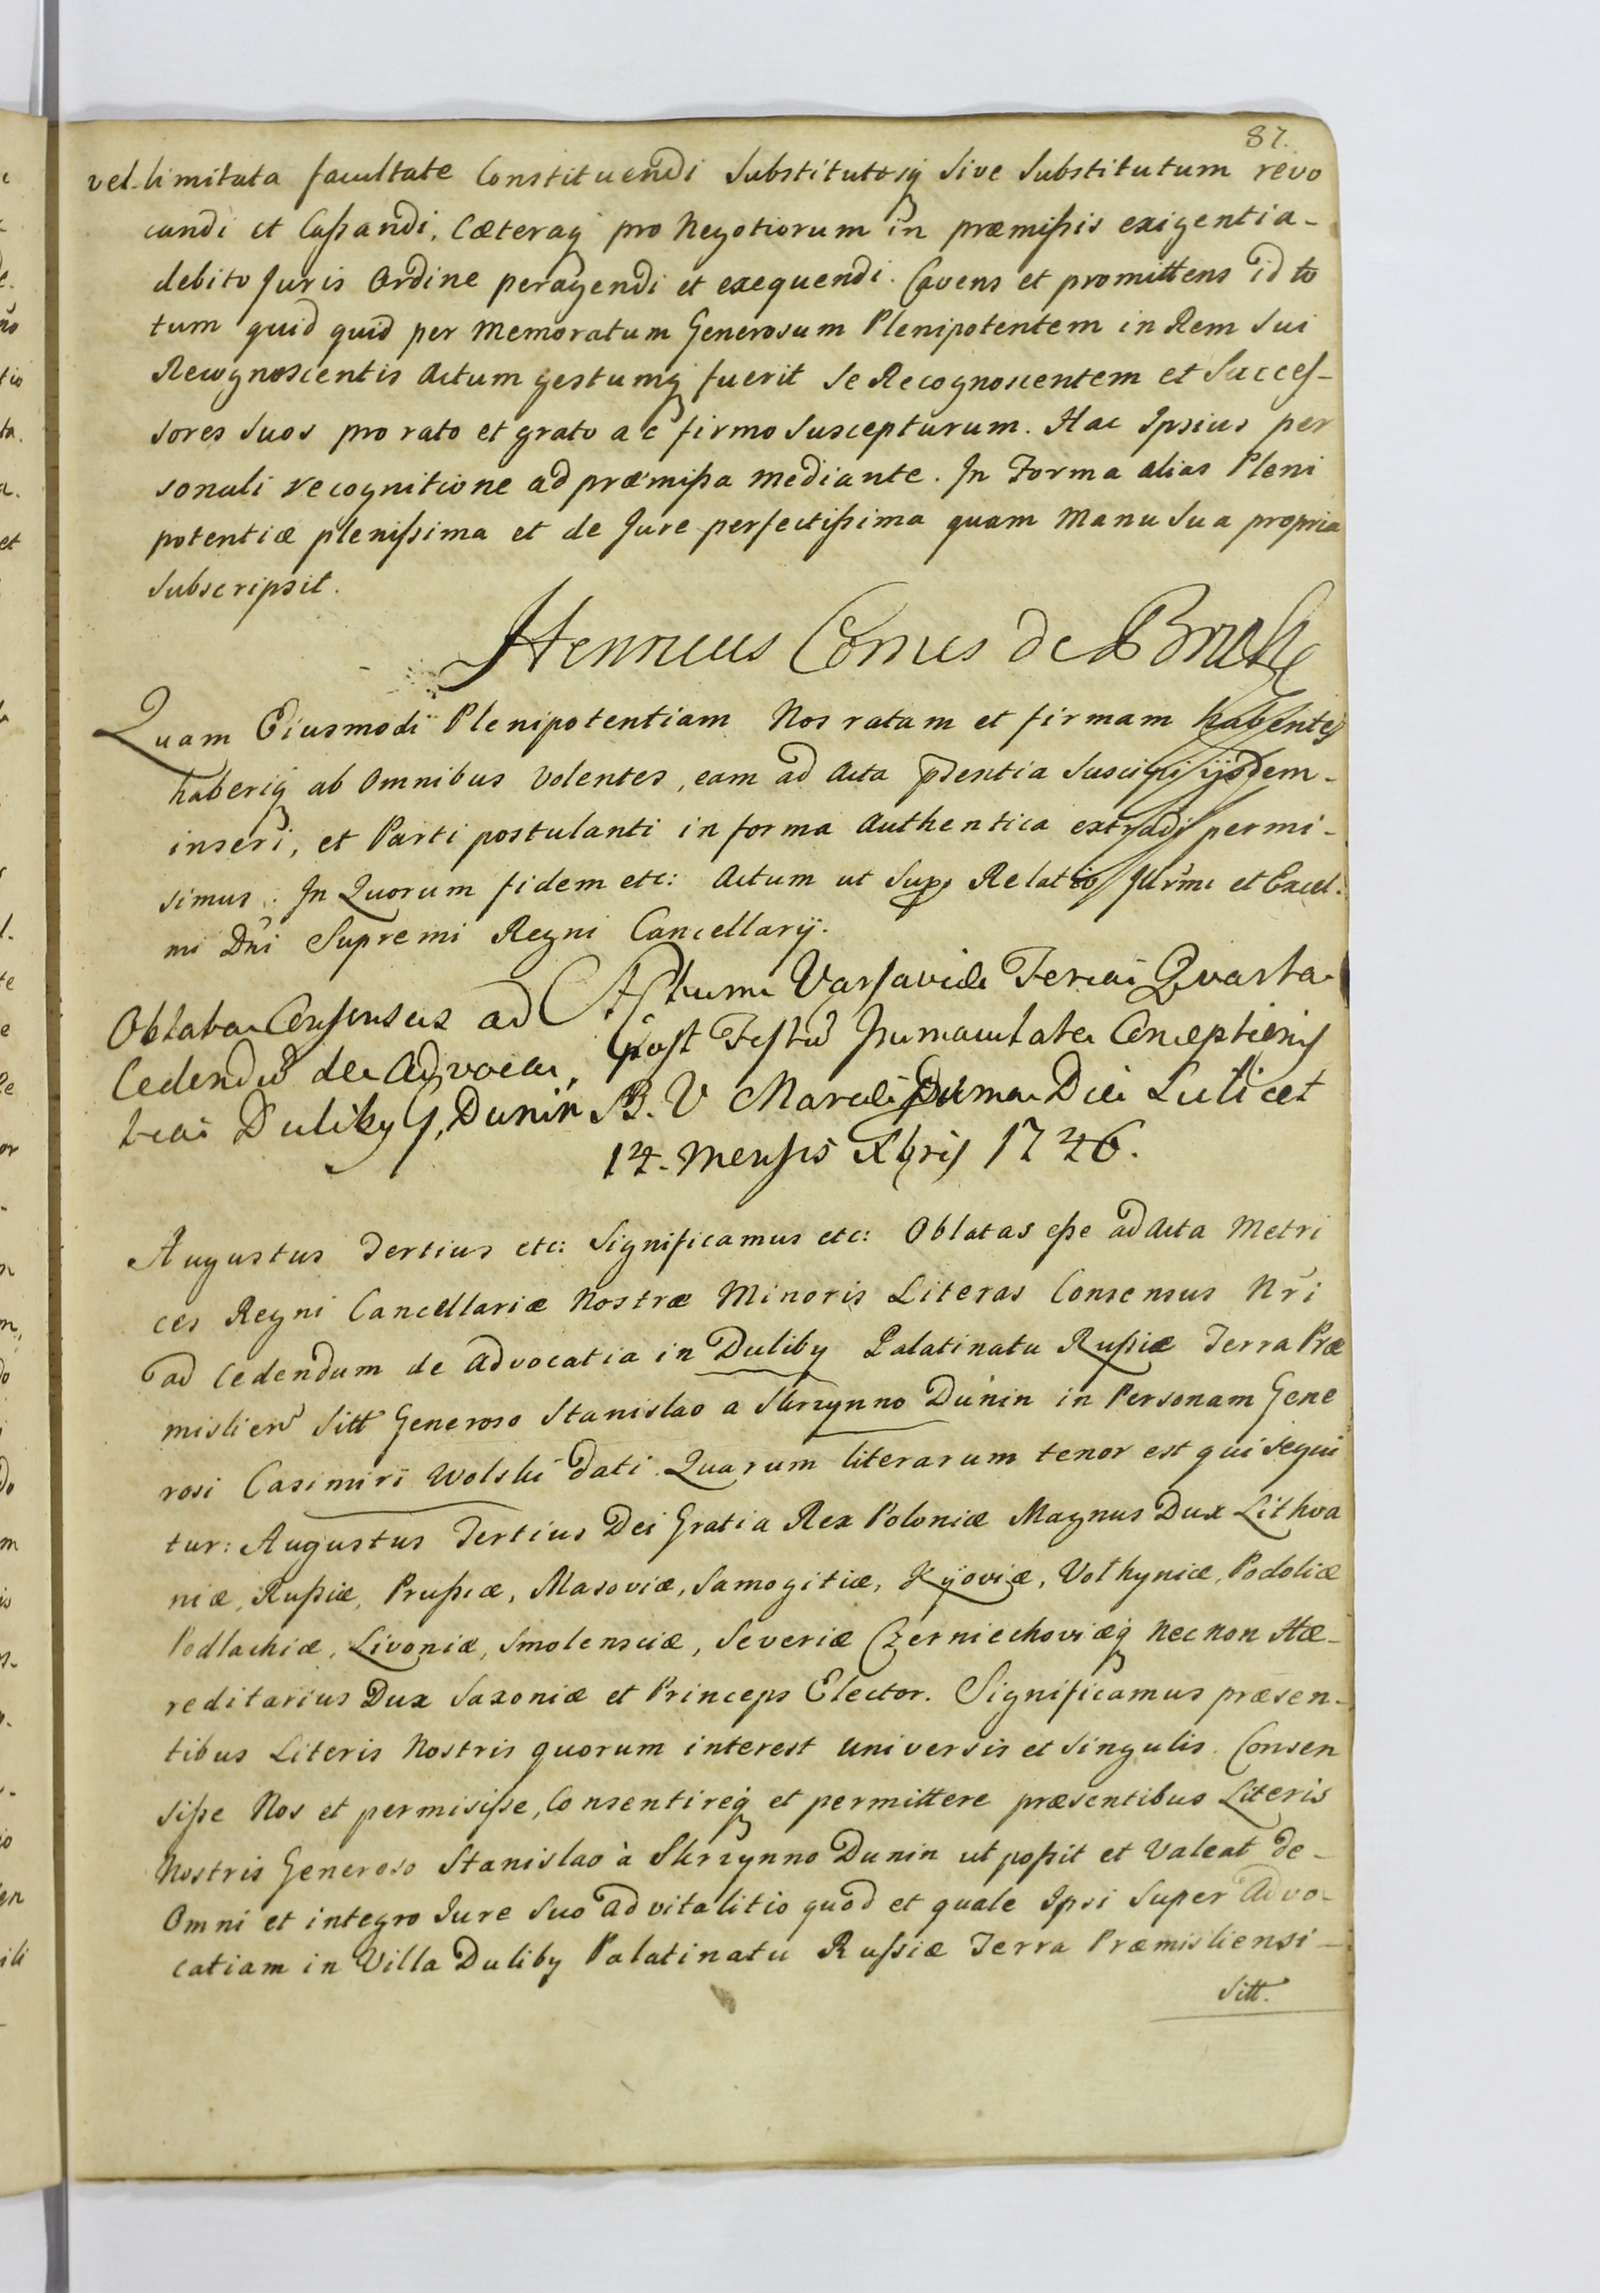 87.
vel limitata facultate Constituendi Substitutosq; Sive Substitutum revo
candi et Cassandi, Cæteraq; pro Negotiorum in præmissis exigentia
debito Juris Ordine peragendi et exequendi. Cavens et promittens id to
tum quid quid per Memoratum Generosum Plenipotentem in Rem Sui
Recognoscentis Actum gestumq; fuerit Se Recognoscentem et Succes-
sores Suos pro rato et grato ac firmo Suscepturum. Hac Ipsius per
sonali recognitione ad præmissa mediante. In Forma alias Pleni
potentiæ plenissima et de Jure perfectissima quam Manu Sua propria
Subscripsit.
Henricus Comes de Bruhl
Quam Eiusmodi Plenipotentiam Nos ratam et firmam habentes
haberiq; ab Omnibus Volentes, eam ad Acta pñtia Suscipi ijsdem
inseri, et Parti postulanti in forma Authentica extradi permi-
simus. In Quorum fidem etc: Actum ut Supra Relatio Jllr̃mi et Excel.
mi Dñi Supremi Regni Cancellarij.
Oblata Consensus ad
Cedendũ de Advoca
tia Duliby G. Dunin
Actum Varsaviæ Feria Quarta
post Festũ Immaculatæ Conceptionis
B. V Mariæ Die Scilicet
14. Mensis Xbris 1746.
Augustus Tertius etc: Significamus etc: Oblatas esse ad Acta Metri
ces Regni Cancellariæ Nostræ Minoris Literas Consensus Nr̃i
ad Cedendum de Advocatia in Duliby Palatinatu Russiæ Terra Præ
mislien̄ Sitt Generoso Stanislao a Skrzynno Dunin in Personam Gene
rosi Casimiri Wolski dati. Quarum literarum tenor est qui sequi
tur: Augustus Tertius Dei Gratia Rex Poloniæ Magnus Dux Lithva
niæ, Russiæ, Prussiæ, Masoviæ, Samogitiæ, Kijoviæ, Volhyniæ, Podoliæ
Podlachiæ, Livoniæ, Smolensciæ, Severiæ Czerniechoviæq; nec non Hæ-
reditarius Dux Saxoniæ et Princeps Elector. Significamus præsen-
tibus Literis Nostris quorum interest universis et Singulis. Consen
sisse Nos et permisisse, Consentireq; et permittere præsentibus Literis
Nostris Generoso Stanislao à Skrzynno Dunin ut possit et Valeat de
Omni et integro Jure Suo ad vitalitio quod et quale Ipsi Super Advo-
catiam in Villa Duliby Palatinatu Russiæ Terra Præmisliensi
Sitt.